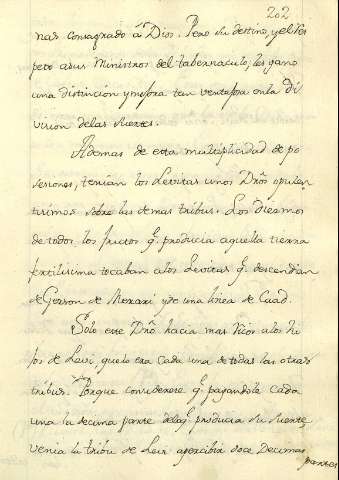 202
nas consagrado â Dios. Pero su destino, y el res
peto asus Ministros del tabernaculo, les gano
una distincion y mejora tan ventajosa en la di
vicion delas suertes.
Ademas de esta multiplicidad de po
sesiones, tenian los Levitas unos Dros opulen
tisimos sobre las demas tribus. Los diesmos
de todos los fructos q. producia aquella tierra
fertilisima tocaban alos Levitas q. descendian
de Gerson de Merari y de una linea de Caad.
Solo este Dro hacia mas ricos alos hi
jos de Levi, quelo era cada una de todas las otras
tribus. Porque considerese q. pagandole cada
una la decima parte delo q. producia su suerte
venia la tribu de Levi apercibir doce Decimas
partes